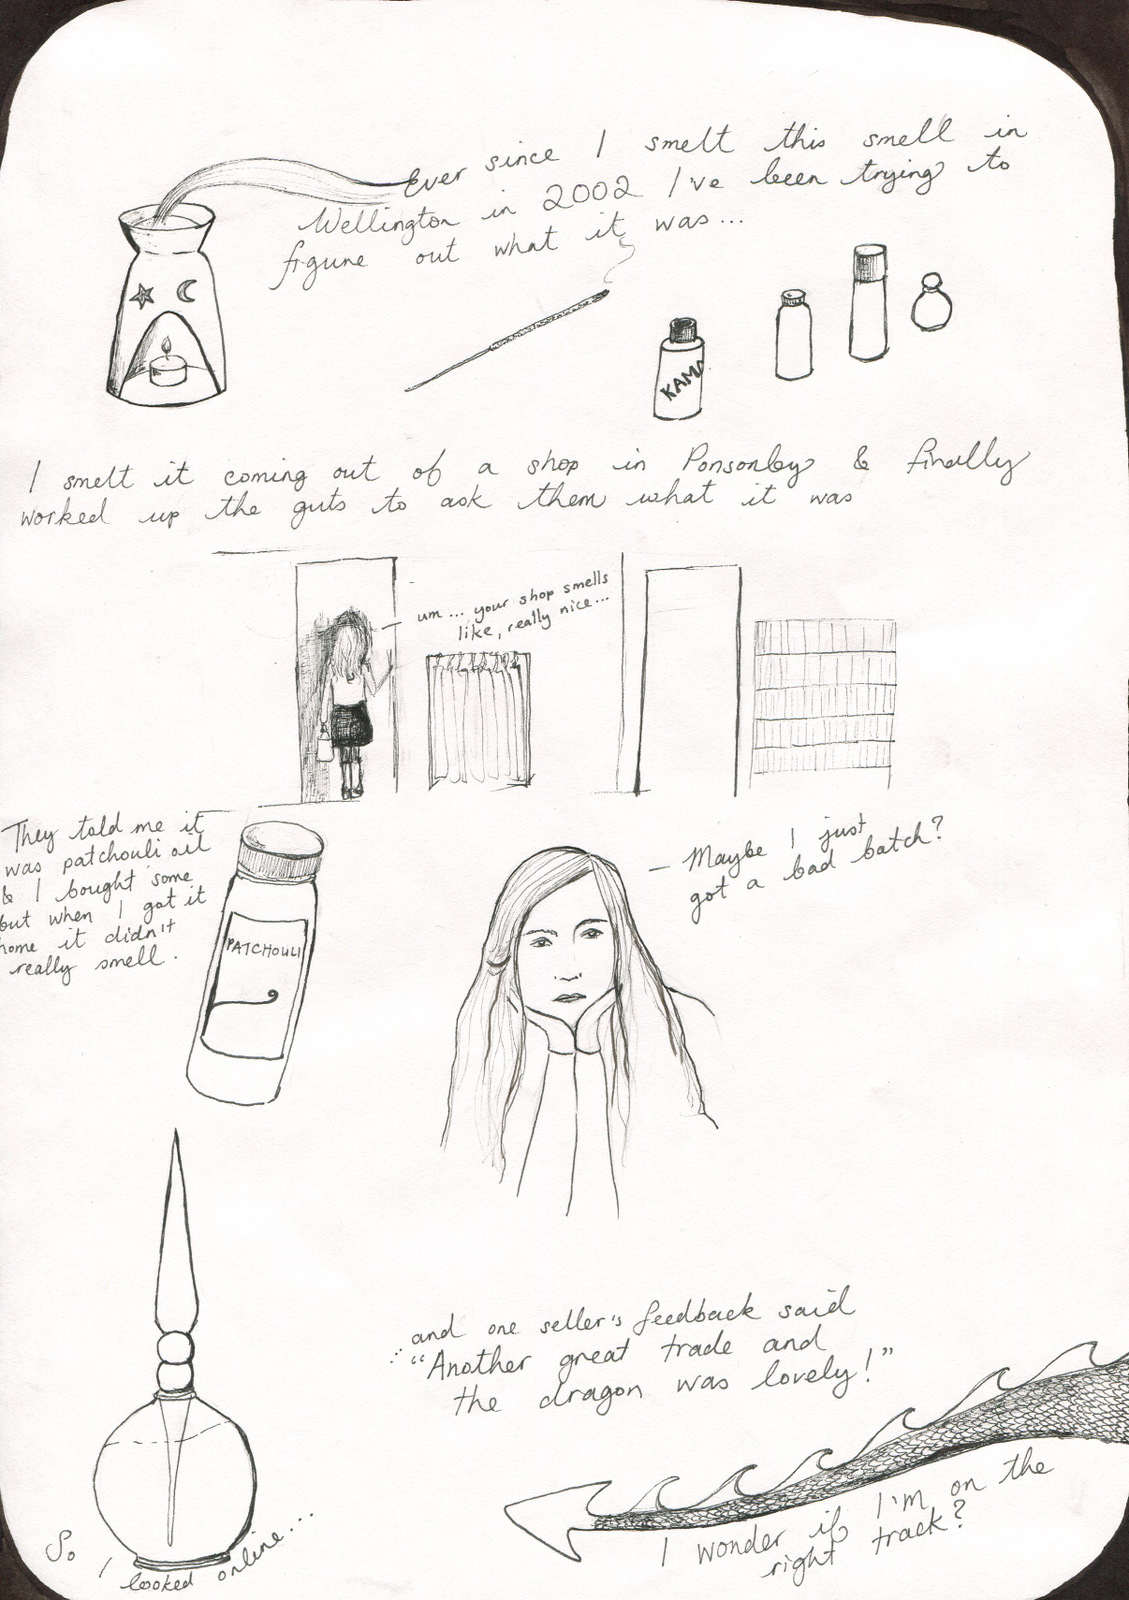 Ever since I smelt this smell in
Wellington in 2002 I've been trying to
figure out what it was...
KAMA
I smelt it coming out of a shop in Ponsonby & finally
worked up the guts to ask them what it was
um... your shop smells
like, really nice...
They told me it
was patchouli oil
& I bought some
but when I got it
home it didn't
really smell.
PATCHOULI
– Maybe I just
got a bad batch?
So I looked online...
and one seller's feedback said
"Another great trade and
the dragon was lovely!"
I wonder if I'm on the
right track?